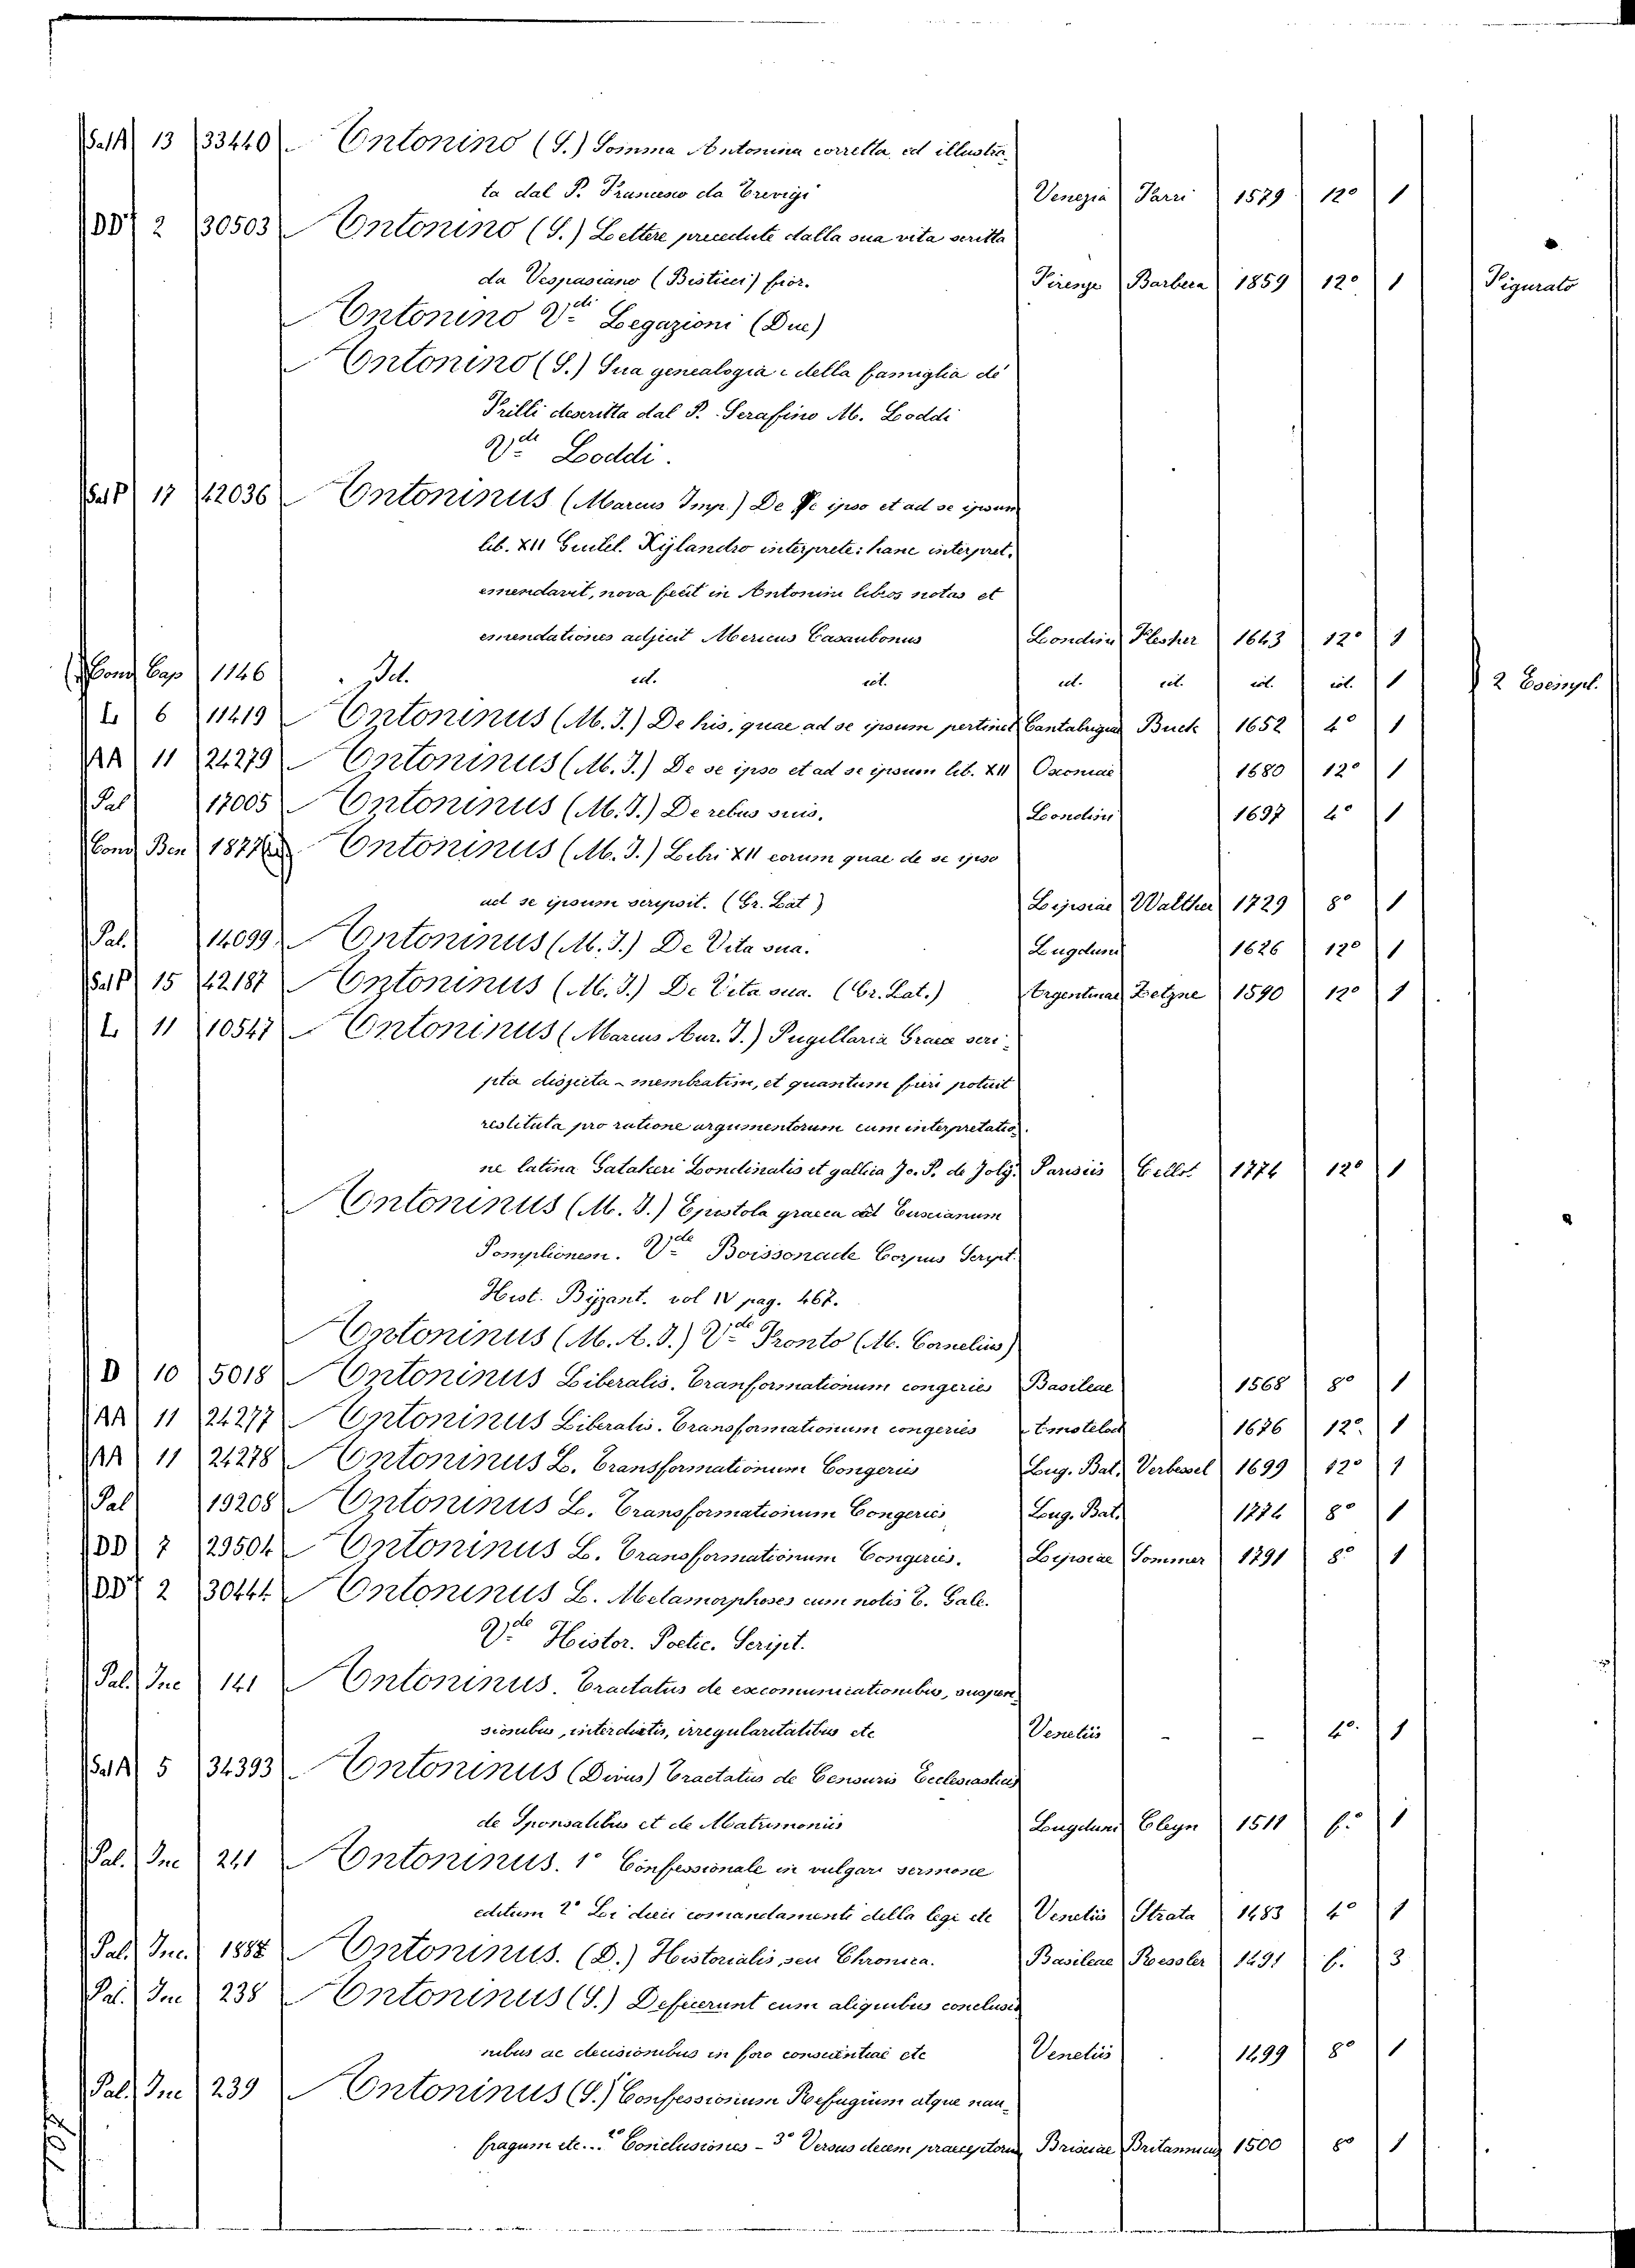 Sal A 13 33440 Antonino (S.) Somma Antonina corretta ed illustra-
ta dal P. Francesco da Trevigi Venezia Farri 1579 12° 1
DD† 2 30503 Antonino (S.) Lettere precedute dalla sua vita scritta
da Vespasiano (Bisticci) fior. Firenze Barbera 1859 12° 1 Figurato
Antonino Vde Legazioni (Due)
Antonino (S.) Sua genealogia e della famiglia de'
Pilli descritta dal P. Serafino M. Loddi
Vde Loddi.
Sal P 17 42036 Antoninus (Marcus Imp.) De Se ipso et ad se ipsum
lib. XII Guilel. Xylandro interprete: hanc interpret.
emendavit, nova fecit in Antonini libros notas et
emendationes adjicit Mericus Casaubonus Londini Flesher 1643 12° 1
Cons Cap 1146 Id. id. id. id. id. id. id. 1 2 Esempl.
L 6 11419 Antoninus (M. I.) De his, quae ad se ipsum pertinet Cantabrigiae Buck 1652 4° 1
AA 11 24279 Antoninus (M. I.) De se ipso et ad se ipsum lib. XII Oxoniae 1680 12° 1
Pal 17005 Antoninus (M. I.) De rebus suis. Londini 1697 4° 1
Cons Ben 1877 Antoninus (M. I.) Libri XII eorum quae de se ipso
ad se ipsum scripsit. (Gr. Lat) Lipsiae Walther 1729 8° 1
Pal. 14099 Antoninus (M. I.) De Vita sua. Lugduni 1626 12° 1
Sal P 15 42187 Antoninus (M. I.) De Vita sua. (Gr. Lat.) Argentinae Zetzne 1590 12° 1
L 11 10547 Antoninus (Marcus Aur. I.) Pugillaria Graece scri-
pta disjecta membratim, et quantum fieri potuit
restituta pro ratione argumentorum cum interpretatio-
ne latina Gatakeri Londinatis et gallica Jo. P. de Joly. Parisiis Cellot 1774 12° 1
Antoninus (M. I.) Epistola graeca ad Euscianum
Pomplionem. Vde Boissonade Corpus Script.
Hist. Byzant. vol IV pag. 467.
Antoninus (M. A. I.) Vde Fronto (M. Cornelius)
D 10 5018 Antoninus Liberalis. Tranformationum congeries Basileae 1568 8° 1
AA 11 24277 Antoninus Liberalis. Transformationum congeries Amstelod 1676 12° 1
AA 11 24278 Antoninus L. Transformationum Congeries Lug. Bat. Verbessel 1699 12° 1
Pal 19208 Antoninus L. Transformationum Congeries Lug. Bat. 1774 8° 1
DD 7 29504 Antoninus L. Transformationum Congeries. Lipsiae Sommer 1791 8° 1
DD† 2 30444 Antoninus L. Metamorphoses cum notis T. Gale.
Vde Histor. Poetic. Script.
Pal. Inc 141 Antoninus. Tractatus de excomunicationibus, suspen-
sionibus, interdictis, irregularitatibus etc Venetiis - - 4°. 1
Sal A 5 34393 Antoninus (Divus) Tractatus de Censuris Ecclesiasticis
de Sponsalibus et de Matrimoniis Lugduni Cleyn 1511 f.° 1
Pal. Inc 241 Antoninus. 1° Confessionale in vulgari sermone
editum 2° Li dieci comandamenti della legi etc Venetiis Strata 1483 4° 1
Pal. Inc. 1888 Antoninus. (D.) Historialis, seu Chronica. Basileae Kessler 1491 f. 3
Pal. Inc 238 Antoninus (S.) Defecerunt cum aliquibus conclusio
nibus ac decisionibus in foro conscientiae etc Venetiis 1499 8° 1
Pal. Inc 239 Antoninus (S.) 1° Confessionum Refugium atque nau-
fragum etc... 2° Conclusiones - 3° Versus decem praeceptorum Brixiae Britannicus 1500 8° 1